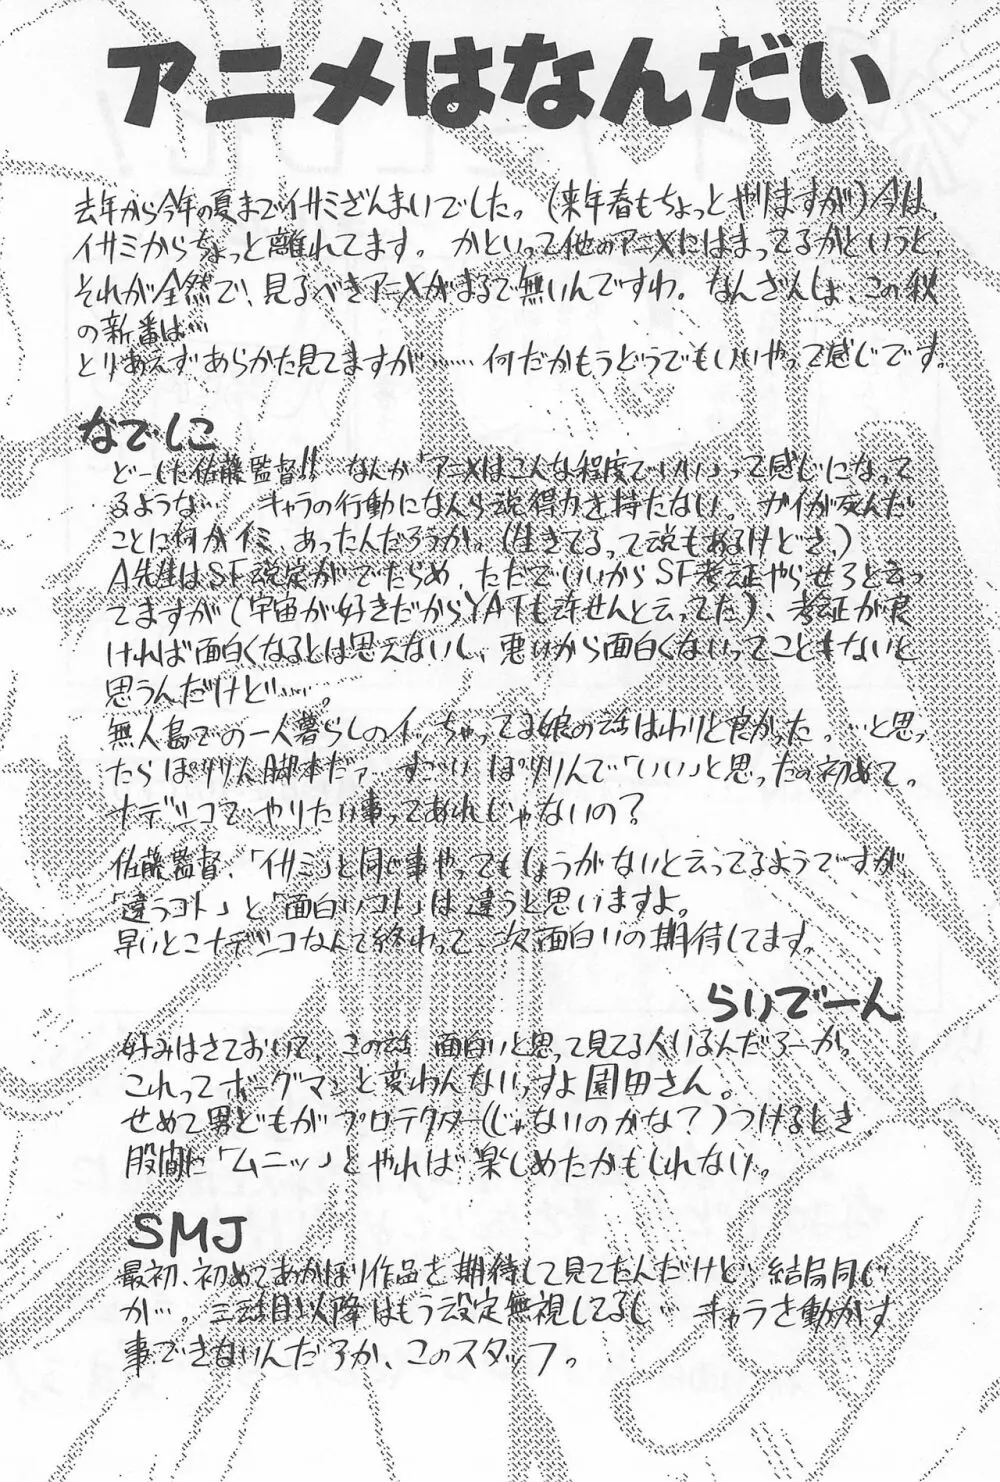 アニメはなんだい
去年から今年の夏までイサミざんまいでした。(来年春もちょっとやりますが)今は、
イサミからちょっと離れてます。かといって他のアニメにはまってるかというと、
それが全然で、見るべきアニメがまるで無いんですわ。なんざんしょ、この秋
の新番は…
とりあえずあらかた見てますが……何だかもうどうでもいいやって感じです。
なでしこ
どーした佐藤監督!! なんか「アニメはこんな程度でいい」って感じになって
るような… キャラの行動になんら説得力を持たない。ガイが死んだ
ことに何かイミ、あったんだろうか。(生きてるって説もあるけどさ。)
A先生はSF設定がでたらめ、ただでいいからSF考証やらせろと云っ
てますが(宇宙が好きだからYATも許せんと云ってた)、考証が良
ければ面白くなるとは思えないし、悪いから面白くないってこともないと
思うんだけど……。
無人島での一人暮らしのイッちゃってる娘の話はわりと良かった。…と思っ
たらぽりりん脚本だァ すごい ぽりりんで「いい」と思ったの初めて。
ナデシコでやりたい事ってあれじゃないの?
佐藤監督、「イサミ」と同じ事やってもしょうがないと云ってるようですが、
「違うコト」と「面白いコト」は違うと思いますよ。
早いとこナデシコなんて終わって 次、面白いの期待してます。
らいでーん
好みはさておいて、この話 面白いと思って見てる人いるんだろーか。
これってボーグマンと変わんないっすよ園田さん。
せめて男どもがプロテクター(じゃないのかな?)つけるとき
股間に「ムニッ」とやれば楽しめたかもしれない。
SMJ
最初、初めてあかほり作品を期待して見てたんだけど 結局同じ
か…。三話目以降はもう設定無視してるし… キャラを動かす
事できないんだろか、このスタッフ。